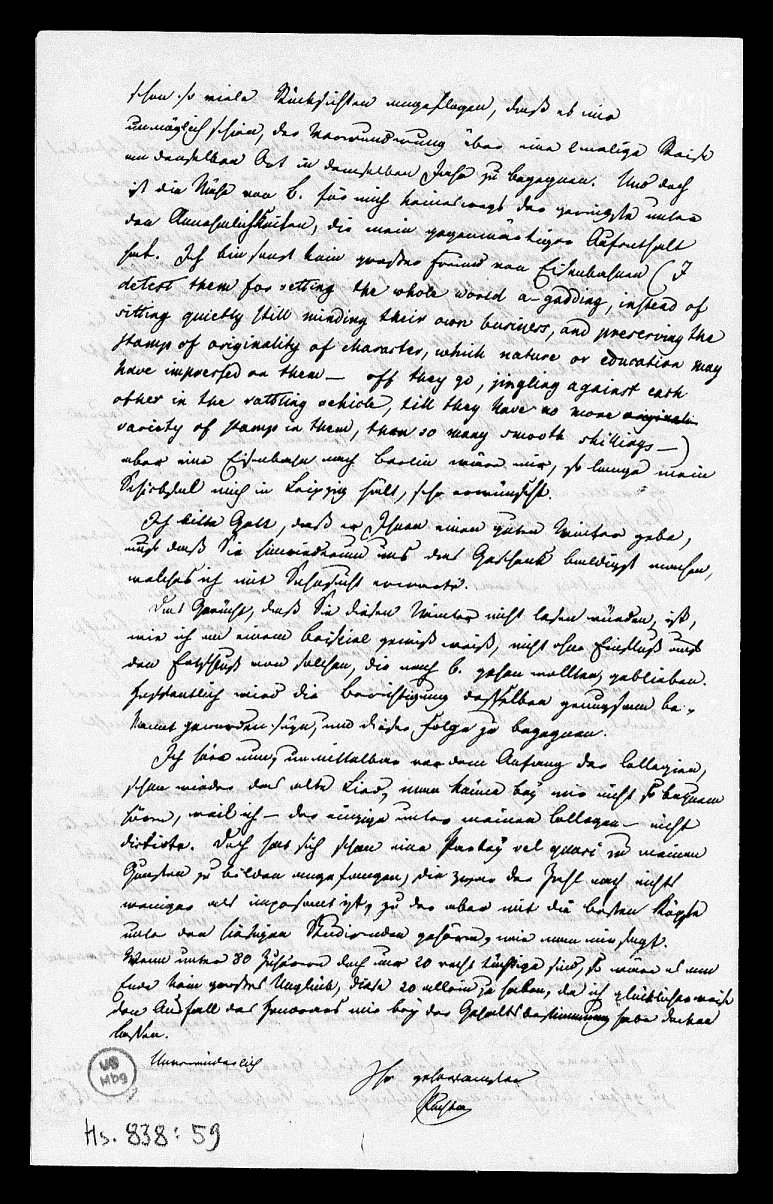 schon so viele Rücksichten angeflogen, daß es mir
unmöglich schien, der Verwunderung über eine 2malige Reise
an denselben Ort in demselben Jahr zu begegnen. Und doch
ist die Nähe von B. für mich keineswegs das geringste unter
den Annehmlichkeiten, die mein gegenwärtiger Aufenthalt
hat. Ich bin sonst kein großer Freund von Eisenbahnen (I
detest them for setting the whole world a-gadding, instead of
sitting quietly still minding their own business, and preserving the
stamp of originality of character, which nature or education may
have impressed on them — off they go, jingling against each
other in the rattling vehicle, till they have no more originali
variety of stamp in them, than so many smooth shillings —)
aber eine Eisenbahn nach Berlin wäre mir, so lange mein
Schicksal mich in Leipzig hält, sehr erwünscht.
Ich bitte Gott, daß er Ihnen einen guten Winter gebe,
und daß Sie hinwiederum uns das Geschenk baldigst machen,
welches ich mit Sehnsucht erwarte.
Das Gerücht, daß Sie diesen Winter nicht lesen würden, ist,
wie ich an einem Beispiel gewiß weiß, nicht ohne Einfluß auf
den Entschluß von solchen, die nach B. gehen wollten, geblieben.
Hoffentlich wird die Berichtigung desselben genugsam be-
kannt geworden seyn, um dieser Folge zu begegnen.
Ich höre nun, unmittelbar vor dem Anfang der Collegien,
schon wieder das alte Lied, man könne bey mir nicht so bequem
hören, weil ich — der einzige unter meinen Collegen — nicht
dictirte. Doch hat sich schon eine Partey vel quasi zu meinen
Gunsten zu bilden angefangen, die zwar der Zahl nach nichts
weniger als imposant ist, zu der aber mit die besten Köpfe
unter den hiesigen Studirenden gehören, wie man mir sagt.
Wenn unter 80 Zuhörern doch nur 20 recht tüchtige sind, so wäre es am
Ende kein großes Unglück, diese 20 allein zu haben, da ich glücklicherweise
den Ausfall des Honorars mir bey der Gehaltsbestimmung habe decken
lassen.
Unveränderlich
Ihr gehorsamster
Puchta
UB
Hbg
Hs. 838: 59